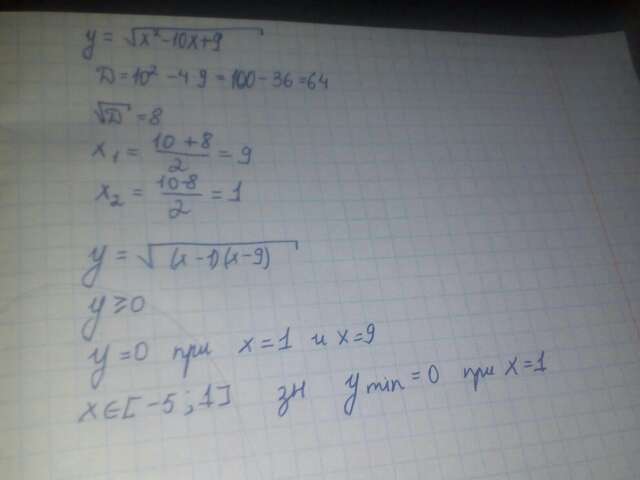 y = √x²-10x+9
D = 10² - 4 9 = 100 - 36 = 64
√D = 8
x₁ = 10 + 8 / 2 = 9
x₂ = 10-8 / 2 = 1
y = √(x-1)(x-9)
y ≥ 0
y = 0 при x = 1 и x = 9
x ∈ [-5 ; 1] зн y min = 0 при x = 1